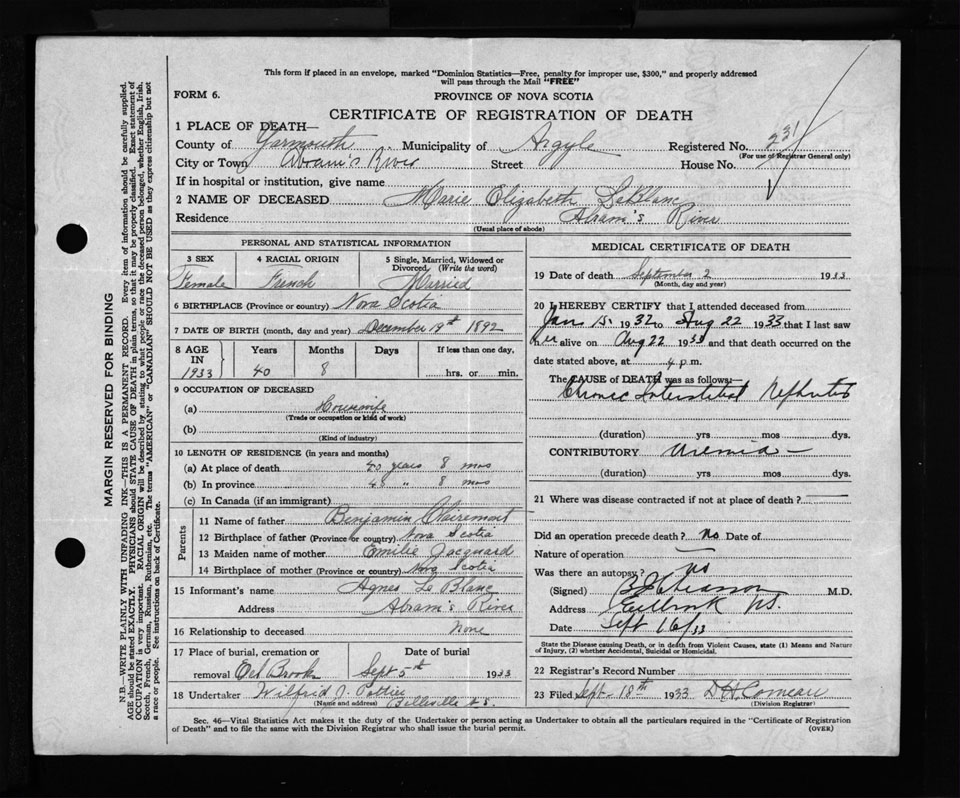 This form if placed in an envelope, marked "Dominion Statistics—Free, penalty for improper use, $300," and properly addressed
will pass through the Mail "FREE"
FORM 6.
PROVINCE OF NOVA SCOTIA
CERTIFICATE OF REGISTRATION OF DEATH
1 PLACE OF DEATH—
County of Yarmouth Municipality of Argyle Registered No. 231
(For use of Registrar General only)
City or Town Abram's River Street House No.
If in hospital or institution, give name
2 NAME OF DECEASED Marie Elizabeth LeBlanc
Residence Abram's River
(Usual place of abode)
PERSONAL AND STATISTICAL INFORMATION
3 SEX 4 RACIAL ORIGIN 5 Single, Married, Widowed or
Divorced (Write the word)
Female French Married
6 BIRTHPLACE (Province or country) Nova Scotia
7 DATE OF BIRTH (month, day and year) December 19th 1892
8 AGE IN 1933 Years Months Days If less than one day,
40 8 hrs. or min.
9 OCCUPATION OF DECEASED
(a) Housewife
(Trade or occupation or kind of work)
(b)
(Kind of industry)
10 LENGTH OF RESIDENCE (in years and months)
(a) At place of death 40 years 8 mos
(b) In province 40 " 8 mos
(c) In Canada (if an immigrant)
Parents
11 Name of father Benjamin Clairemont
12 Birthplace of father (Province or country) Nova Scotia
13 Maiden name of mother Emilie Jacquard
14 Birthplace of mother (Province or Country) Nova Scotia
15 Informant's name Agnes Le Blanc
Address Abram's River
16 Relationship to deceased None
17 Place of burial, cremation or Date of burial
removal Eel Brook Sept 5th 1933
18 Undertaker Wilfrid J. Pottier
(Name and address) Belleville N S.
MEDICAL CERTIFICATE OF DEATH
19 Date of death September 2 1933
(Month, day and year)
20 I HEREBY CERTIFY that I attended deceased from
Jan 15 1932 to Aug 22 1933 that I last saw
her alive on Aug 22 1933 and that death occurred on the
date stated above, at 4 p.m.
The CAUSE of DEATH was as follows:—
Chronic Interstitial Nephritis
(duration) yrs mos dys.
CONTRIBUTORY Uremia —
(duration) yrs. mos. dys.
21 Where was disease contracted if not at place of death?
Did an operation precede death? No Date of
Nature of operation
Was there an autopsy? No
(Signed) M.D.
Address Eelbrook NS.
Date Sept 16/33
State the Disease causing Death, or in death from Violent Causes, state (1) Means and Nature
of Injury, (2) whether Accidental, Suicidal or Homicidal.
22 Registrar's Record Number
23 Filed Sept 18th 1933 D H Comeau
(Division Registrar)
Sec. 46—Vital Statistics Act makes it the duty of the Undertaker or person acting as Undertaker to obtain all the particulars required in the "Certificate of Registration
of Death" and to file the same with the Division Registrar who shall issue the burial permit. (OVER)
MARGIN RESERVED FOR BINDING
N.B.—WRITE PLAINLY WITH UNFADING INK—THIS IS A PERMANENT RECORD. Every item of information should be carefully supplied.
AGE should be stated EXACTLY. PHYSICIANS should STATE CAUSE OF DEATH in plain terms, so that it may be properly classified. Exact statement of
OCCUPATION is very important. RACIAL ORIGIN will be described by stating to what people or race the deceased person belonged, whether English, Irish,
Scotch, French, German, Russian, Ruthenian, etc. The terms "AMERICAN" or "CANADIAN" SHOULD NOT BE USED as they express citizenship but not
a race or people. See instructions on back of Certificate.